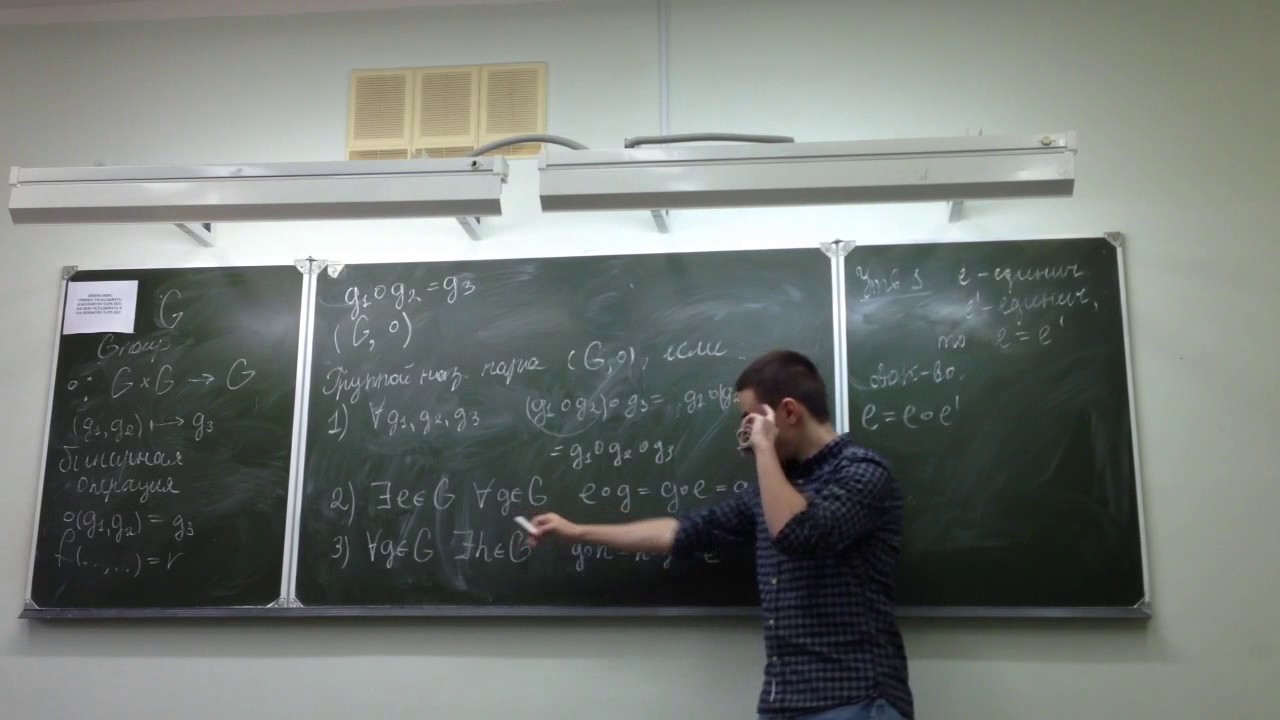 G
Group
∘: G × G → G
(g₁, g₂) ↦ g₃
бинарная
операция
∘(g₁, g₂) = g₃
f(..., ...) = r
g₁∘g₂ = g₃
(G, ∘)
Группой наз. пара (G, ∘), если
1) ∀ g₁, g₂, g₃ (g₁∘g₂)∘g₃ = g₁∘(g₂
= g₁∘g₂∘g₃
2) ∃e∈G ∀g∈G e∘g = g∘e =
3) ∀g∈G ∃h∈G g∘h = h∘g = e
Утв 1 e - единич
e' - единич,
то e = e'
Док-во.
e = e∘e'